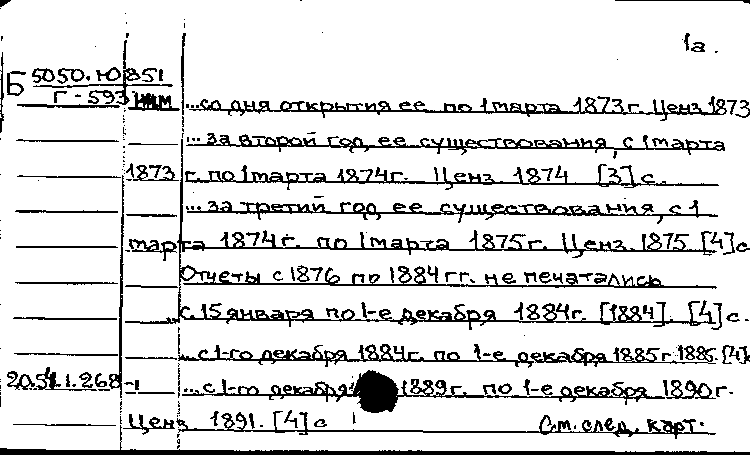 1а.
Б 5050.Ю851
Г-593 ...со дня открытия ее по 1 марта 1873 г. Ценз 1873
...за второй год, ее существования, с 1 марта
1873 г. по 1 марта 1874 г. Ценз 1874 [3] с.
...за третий год, ее существования, с 1
марта 1874 г. по 1 марта 1875 г. Ценз. 1875 [4] с
Отчеты с 1876 по 1884 гг. не печатались
...с 15 января по 1-е декабря 1884 г. [1884]. [4] с.
...с 1-го декабря 1884 г. по 1-е декабря 1885 г. 1885. [4]
...с 1-го декабря 1889 г. по 1-е декабря 1890 г.
Ценз 1891. [4] с См. след. карт.